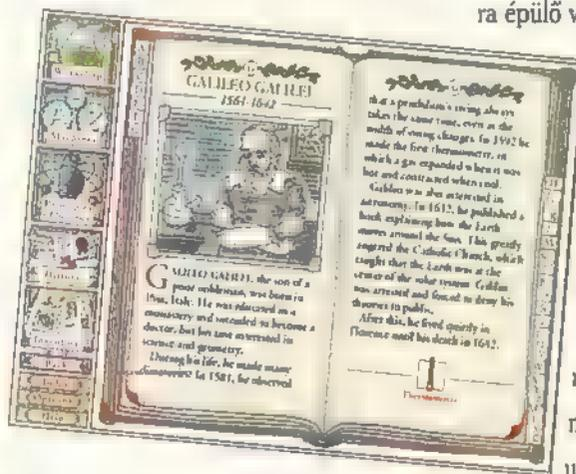 ra épülő v
GALILEO GALILEI
1564-1642
GALILEO GALILEI, the son of a
poor nobleman, was born in
Pisa, Italy. He was educated in a
monastery and intended to become a
doctor, but became interested in
science and geometry.
During his life, he made many
discoveries. In 1581, he observed
that a pendulum's swing always
takes the same time, even as the
width of swing changes. In 1592 he
made the first thermometer, in
which a gas expanded when it was
hot and contracted when cool.
Galileo was also interested in
astronomy. In 1612, he published a
book explaining how the Earth
moves around the Sun. This greatly
angered the Catholic Church, which
taught that the Earth was at the
center of the solar system. Galileo
was arrested and forced to deny his
theories in public.
After this, he lived quietly in
Florence until his death in 1642.
Thermometer
Back
Index
Options
Help